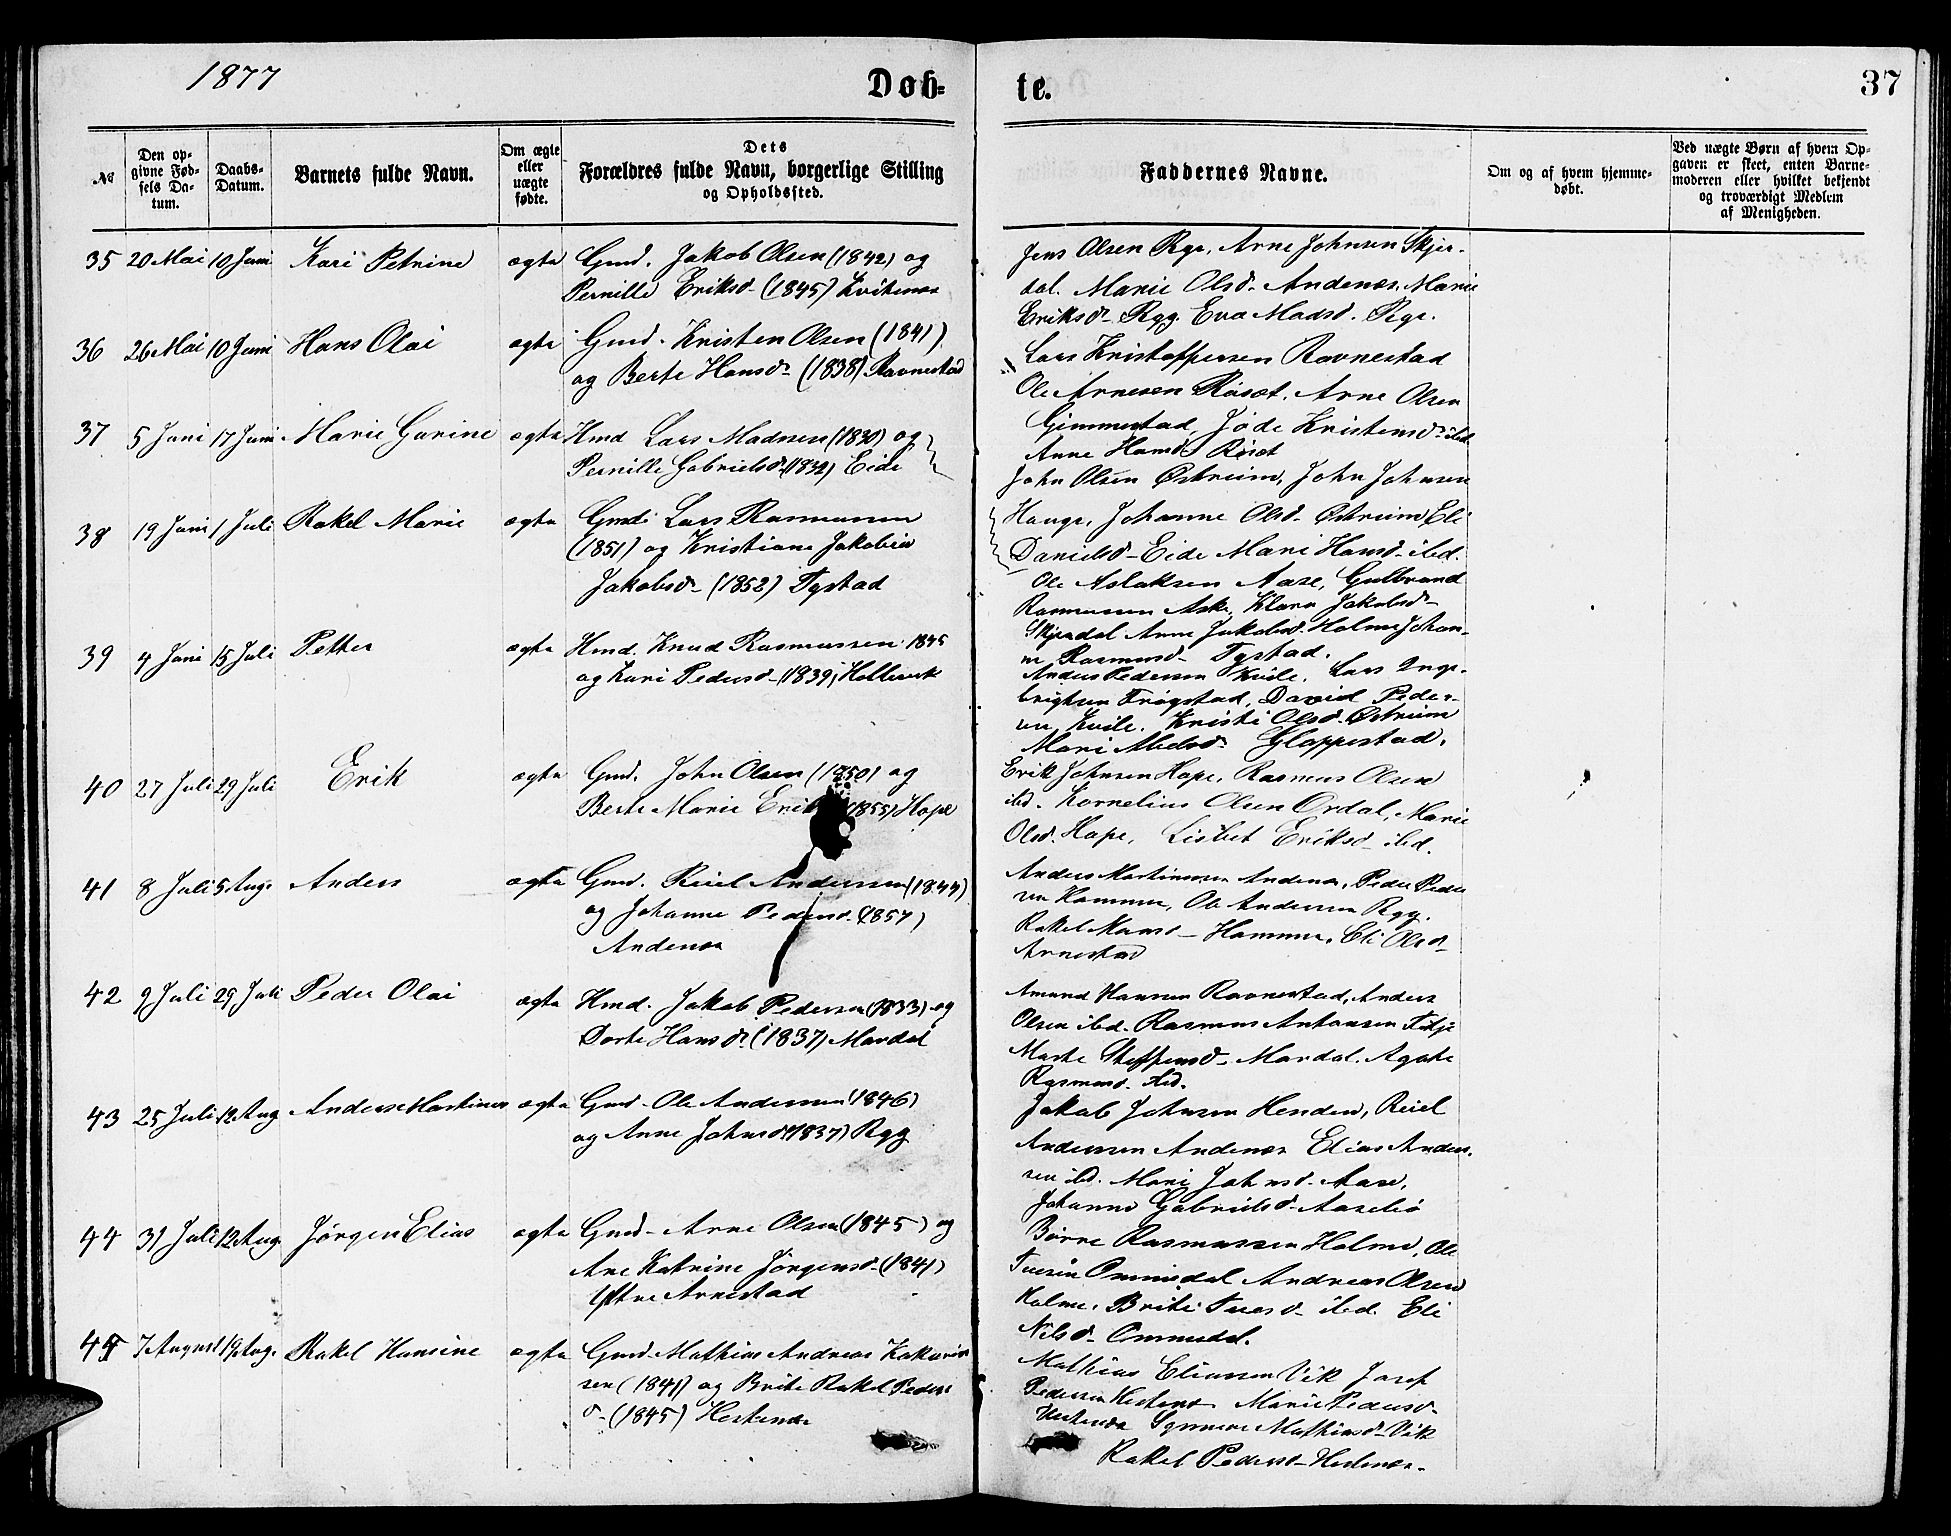 1877
Døb=
te.
37
№
Den op-
givne Fød-
sels Da-
tum.
Daabs-
Datum.
Barnets fulde Navn.
Om ægte
eller
uægte
fødte.
Dets
Forældres fulde Navn, borgerlige Stilling
og Opholdssted.
Faddernes Navne.
Om og af hvem hjemme-
døbt.
Ved uægte Børn af hvem Op-
gaven er skeet, enten Barne-
moderen eller hvilket bekjendt
og troværdigt Medlem
af Menigheden.
35 20 Mai 10 Juni Kari Petrine ægte Gmd. Jakob Olsen (1842) og
Pernille Eriksd. (1845) Kvitenes
Jens Olsen Ryg, Arne Johnsen Skjer-
dal. Marie Olsd. Andenes, Marie
Eriksd. Rygg. Eva Madsd. Ryg.
36 26 Mai 10 Juni Hans Olai ægte Gmd. Kristen Olsen (1841)
og Berte Hansd. (1838) Ravnestad
Lars Kristoffersen Ravnestad
Ole Arnesen Røset, Arne Olsen
Gimmestad, Jøde Kristensd. ibd.
Anne Hansd. Røset
37 5 Juni 17 Juni Marie Garine ægte Hmd Lars Madssen (1830) og
Pernille Gabrielsd. (1832) Eide
John Olsen Østreim, John Johnsen
Hauge, Johanne Olsd. Østreim, Eli
Danielsd. Eide Mari Hansd. ibd.
38 19 Juni 1 Juli Rakel Marie ægte Gmd. Lars Rasmussen
(1851) og Kristiane Jakobine
Jakobsd. (1852) Tystad
Ole Aslaksen Aase, Gulbrand
Rasmussen Aske, Klara Jakobsd.
Skjerdal Anne Jakobsd. Holme Johan-
ne Rasmusd. Tystad.
39 4 Juni 15 Juli Petter ægte Hmd. Knud Rasmussen 1845
og Kari Pedersd. (1839)
Anders Pedersen Kvile, Lars Inge-
brigtsen Frøystad, David Peder-
sen Kvile. Kristi Olsd. Østreim
Mari Abelsd. Gloppestad.
40 27 Juli 29 Juli Erik ægte Gmd. John Olsen (1850) og
Berte Marie (1855) Hope
Erik Johnsen Hope, Rasmus Olsen
ibd. Kornelius Olsen Ordal, Marie
Olsd. Hope, Lisbet Eriksd. ibd.
41 8 Juli 5 Aug. Anders ægte Gmd. Reiel Anderssen (1844)
og Johanne Pedersd. (1857)
Andenes
Anders Martinussen Andenes, Peder Peder
sen Hammer, Ole Andersen Rygg.
Rakel Hammer, Eli Olsd.
Arnestad
42 9 Juli 29 Juli Peder Olai ægte Hmd. Jakob Pedersen (1833) og
Dorte Hansd. (1837) Mardal
Amund Hansen Ravnestad, Anders
Olsen ibd. Rasmus Antonsen Fitje
Marte Steffensd. Mardal. Agate
Rasmusd. ibd.
43 25 Juli 12 Aug Anders Martinus ægte Gmd. Ole Andersen (1846)
og Anne Johnsd. (1837) Rygg
Jakob Johnsen Henden, Reiel
Anderssen Andenes Elias Anders-
sen ibd. Mari Johnsd. Aase,
Johanne Gabrielsd. Aasebø
44 31 Juli 12 Aug. Jørgen Elias ægte Gmd. Arne Olsen (1845) og
Ane Katrine Jørgensd. (1841)
Ytre Arnestad
Børre Rasmussen Holme, Ole
Tuesen Ommedal Andreas Olsen
Holme, Brite Tuesd. ibd. Eli
Nilsd. Ommedal.
45 7 August 19 Aug. Rakel Hansine ægte Gmd. Mathias Andreas Zakarias
sen (1841) og Brite Rakel Peders
d. (1845) Hestenes
Mathias Eliassen Vik Josef
Pedersen Hestenes Marie Pedersd.
Hestenes Synneve Mathiasd. Vik
Rakel Pedersd. Hestenes.